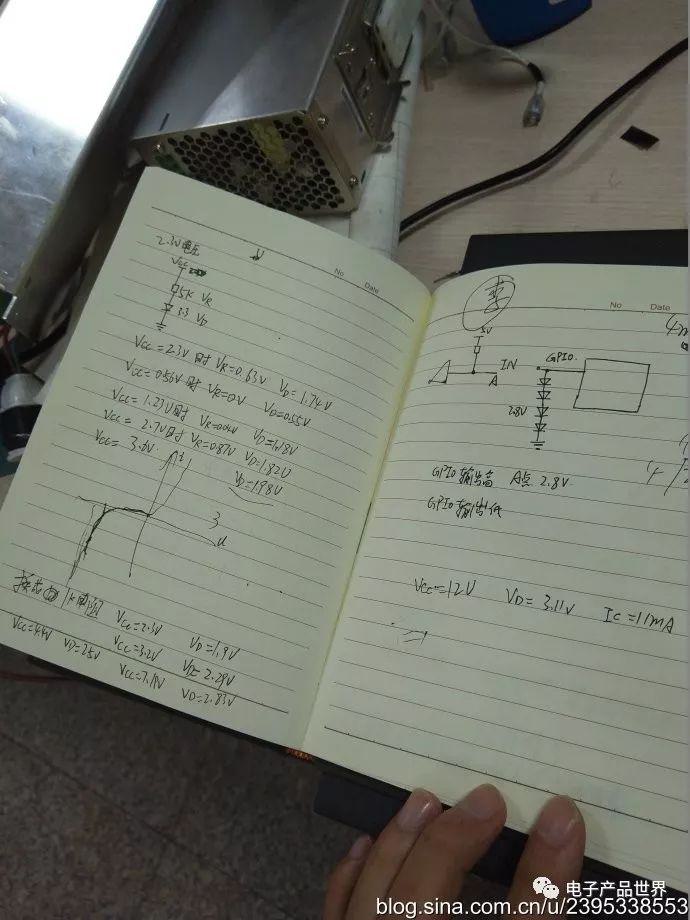 No
Date
VCC
5K VR
3.3 VD
VCC=2.3V时 VR=0.63V VD=1.74V
VCC=0.56V时 VR=0V VD=0.55V
VCC=1.23V时 VR=0.04V VD=1.18V
VCC=2.7V时 VR=0.87V VD=1.82V
VCC=3.6V. VD=1.98V
3
u
1K电阻 VCC=2.3V VD=1.9V
VCC=4.4V VD=2.5V VCC=3.2V VD=2.29V
VCC=7.11V VD=2.83V
No
Date
5V
IN
A
GPIO.
2.8V
GPIO输出高 A点 2.8V
GPIO输出低
VCC=12V VD=3.11V IC=11mA
电子产品世界
blog.sina.com.cn/u/2395338553